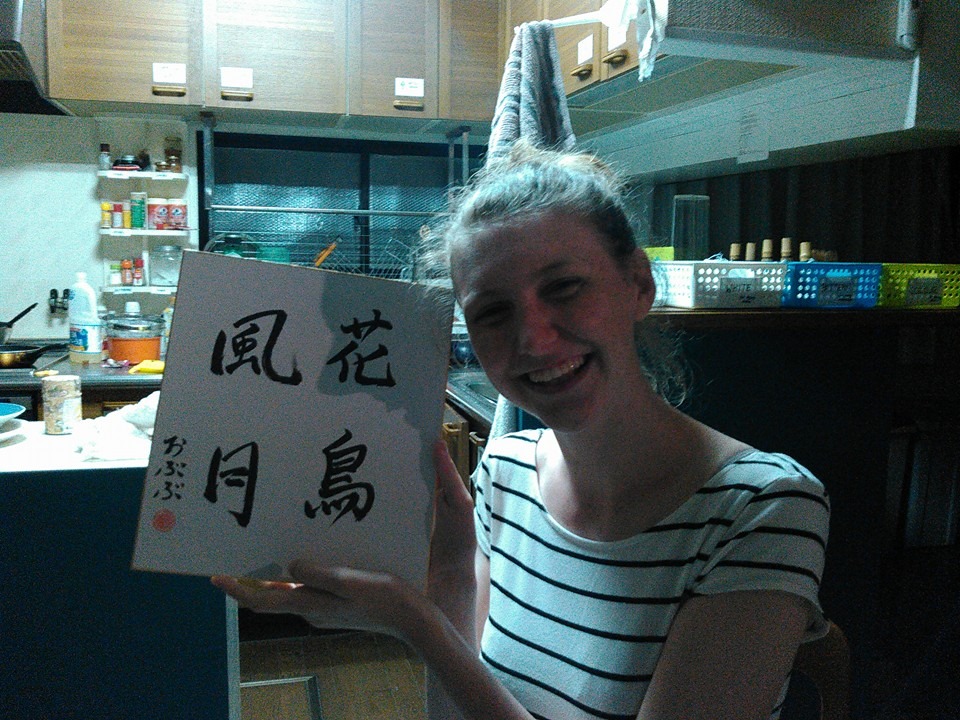 花鳥
風月
おぶぶ
WHITE